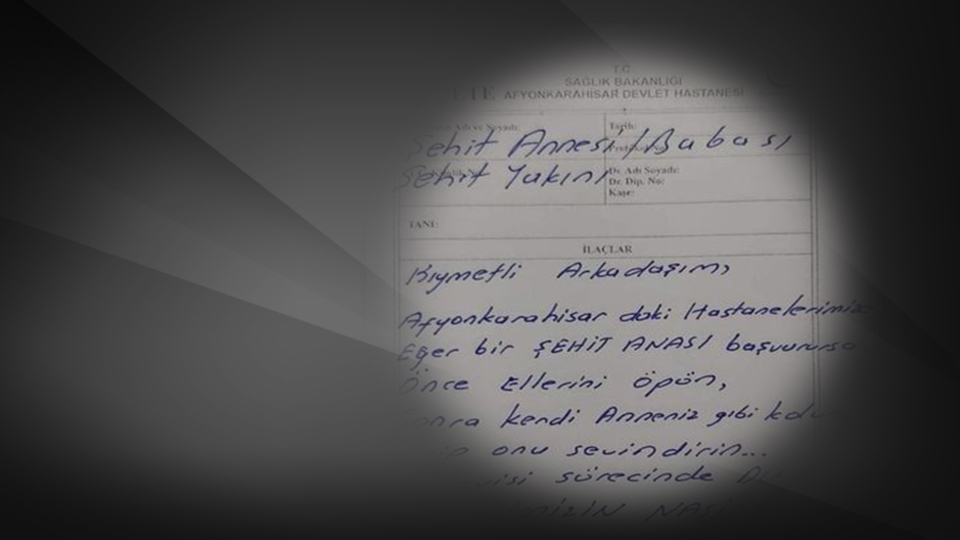 T.C.
SAĞLIK BAKANLIĞI
AFYONKARAHİSAR DEVLET HASTANESİ
Adı ve Soyadı:
Tarih:
Şehit Annesi/Babası
Şehit Yakını
Dr. Adı Soyadı:
Dr. Dip. No:
Kaşe:
TANI:
İLAÇLAR
Kıymetli Arkadaşım,
Afyonkarahisar daki Hastanelerimize
Eğer bir ŞEHİT ANASI başvurursa
Önce Ellerini Öpün,
Sonra kendi Anneniz gibi
onu sevindirin...
sürecinde